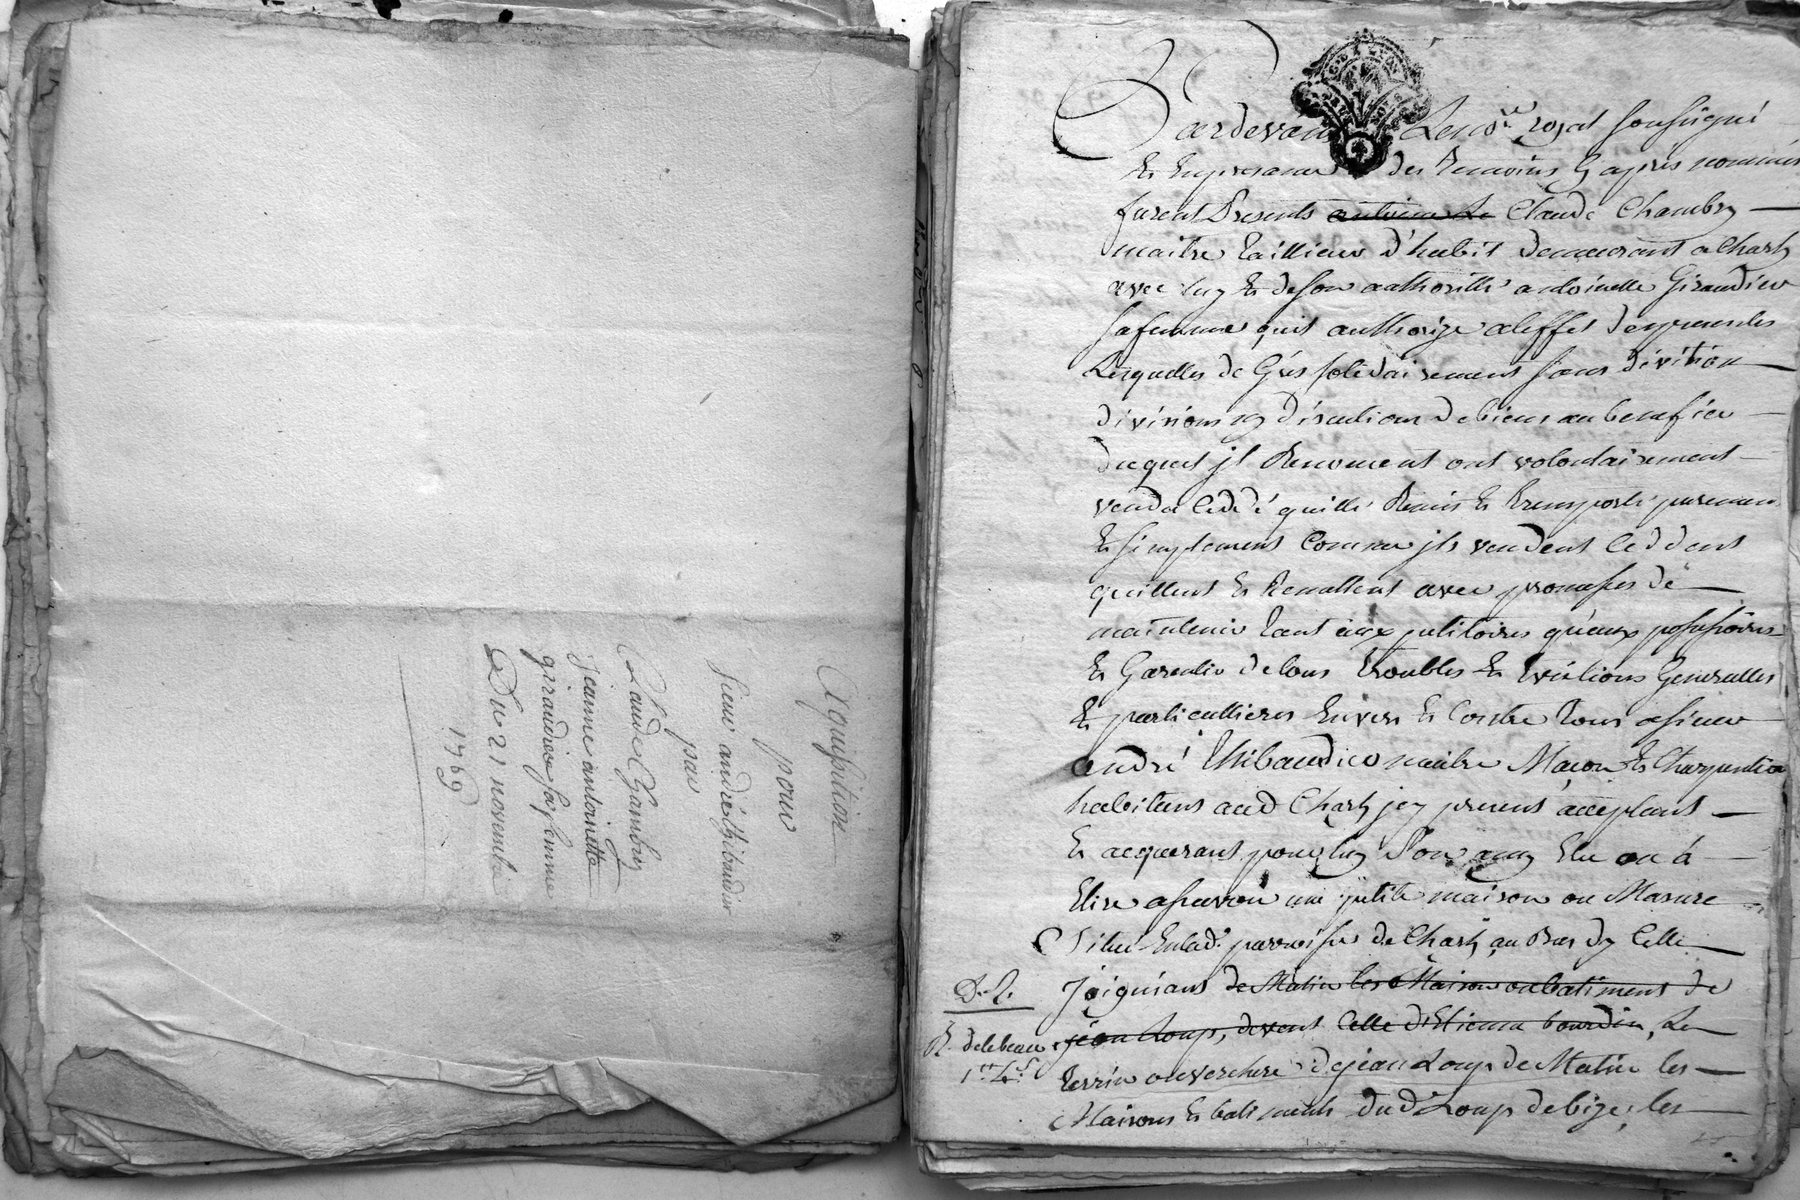 Acquisition
pour
Sieur andré thibaudier
par
Claude Chambry
Jeanne antoinette
giraudier sa femme
Du 21 novembre
1769
Pardevant Le no.re royal soussigné
Et En presence des temoins cy apres nommés
furent Presents antoine Le Claude Chambry
maitre taillieur d'habit demeurant a Charly
avec luy Et de son authorité antoinette Giraudier
sa femme quil authorize a leffet des presentes
Lesquelles de Grés solidairement sans division
division ny discution de biens au benefice
duquel jl Renoncent ont volontairement
vendu cedé quitté Remis Et transporté purement
Et simplement Comme jls vendent Ceddent
quittent Et Remettent avec promesses de
maintenir tant aux petitoires qu'aux possessoires
Et Garentir de tous troubles Et Evictions Generalles
Et particullieres Envers Et Contre tous a sieur
andré thibaudier maitre Maçon Et Charpentier
habitant aud Charly jcy present acceptant
Et acquerant pour luy Son amy Elu ou á
Elire a scavoir une petite maison ou Masure
Situee Enlad. parroisse de Charly au Bas dy Celle
Joignant de Matin les Maison ou batiment de
jean Loup, devent Celle d'Etienne bourdin, Le
terrin ou verchere de jean Loup de Matin les
Maisons Et batiments dud Loup de bize, les
D. L.
R. delebeau
1.re